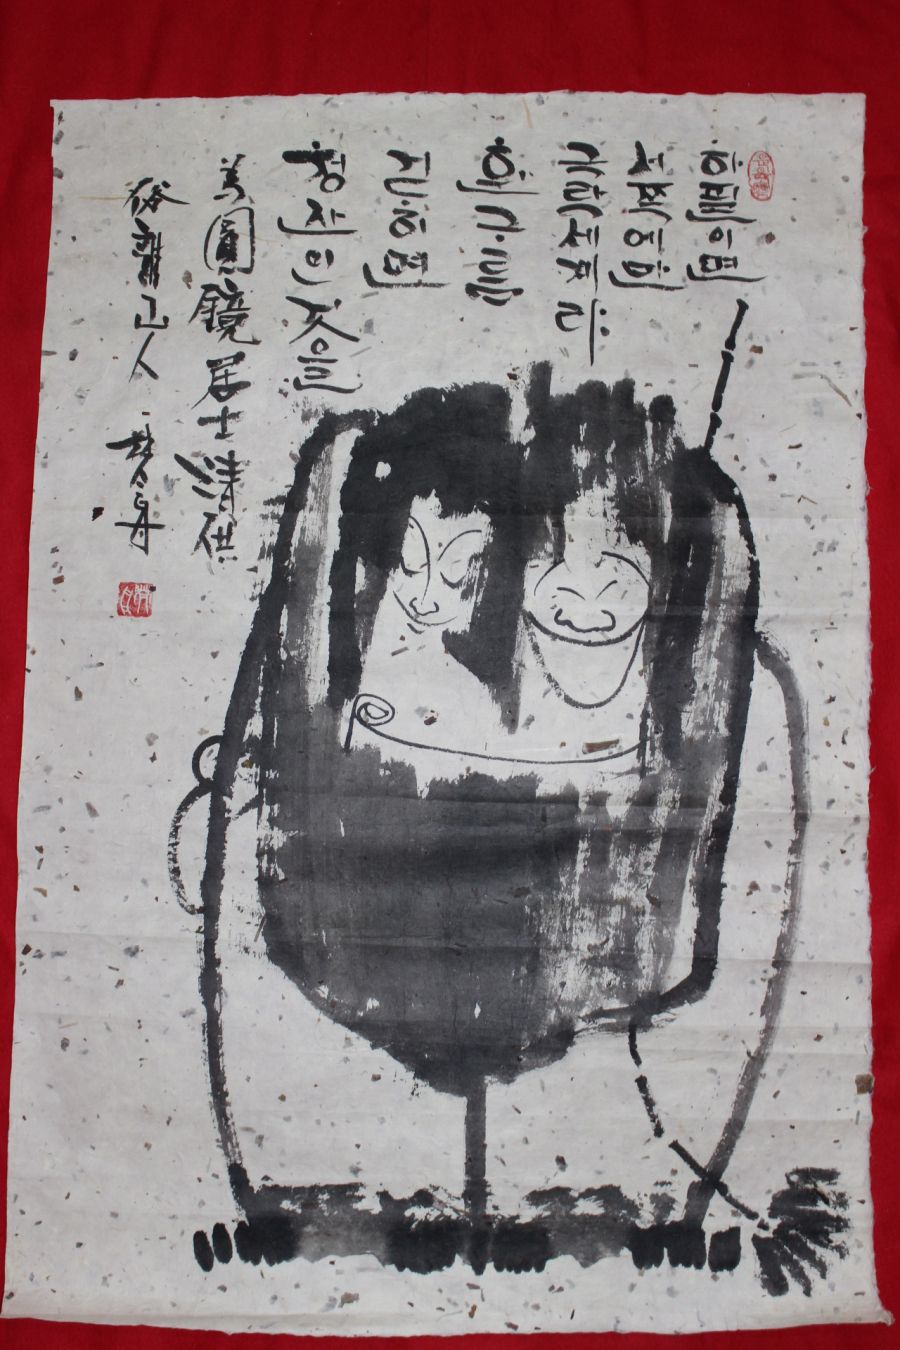 하필이면
서쪽에만
극락세계랴
흰구름
걷히면
청산인것을
為圓鏡居士清供
俗離山人 梵舟